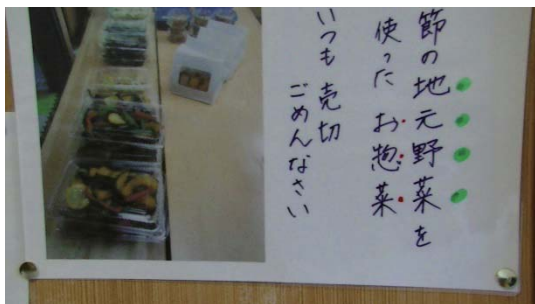 節の地元野菜を
使ったお惣菜
いつも売切
ごめんなさい